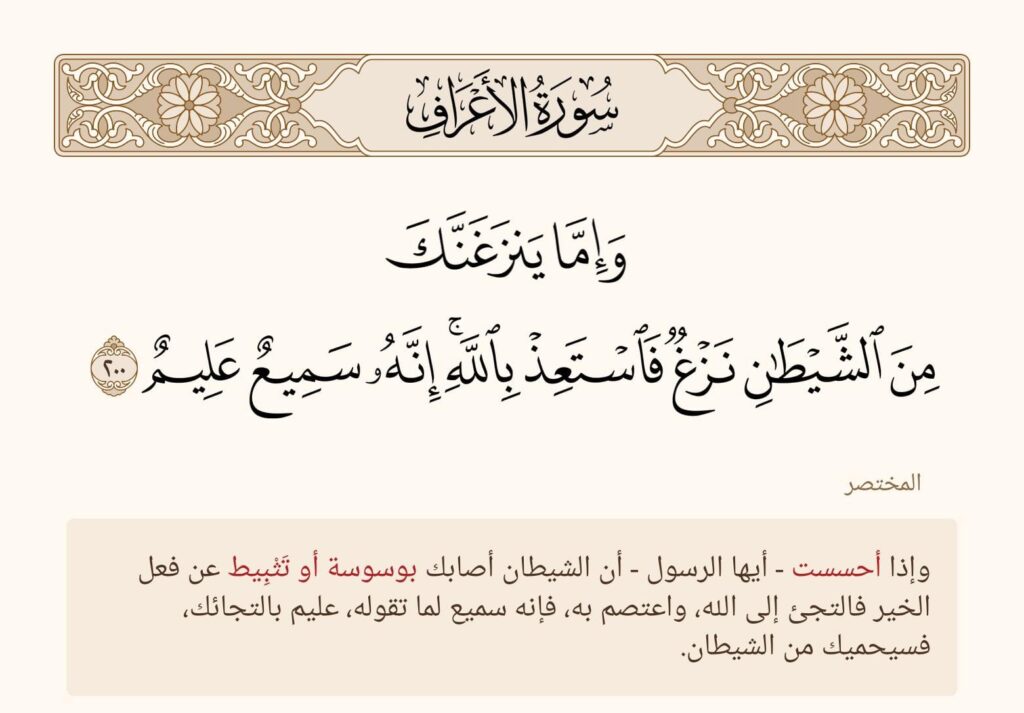 سُورَةُ الأَعْرَافِ
وَإِمَّا يَنزَغَنَّكَ
مِنَ ٱلشَّيْطَٰنِ نَزْغٌ فَٱسْتَعِذْ بِٱللَّهِۚ إِنَّهُۥ سَمِيعٌ عَلِيمٌ ٢٠٠
المختصر
وإذا أحسست - أيها الرسول - أن الشيطان أصابك بوسوسة أو تَثْبِيط عن فعل
الخير فالتجئ إلى الله، واعتصم به، فإنه سميع لما تقوله، عليم بالتجائك،
فسيحميك من الشيطان.